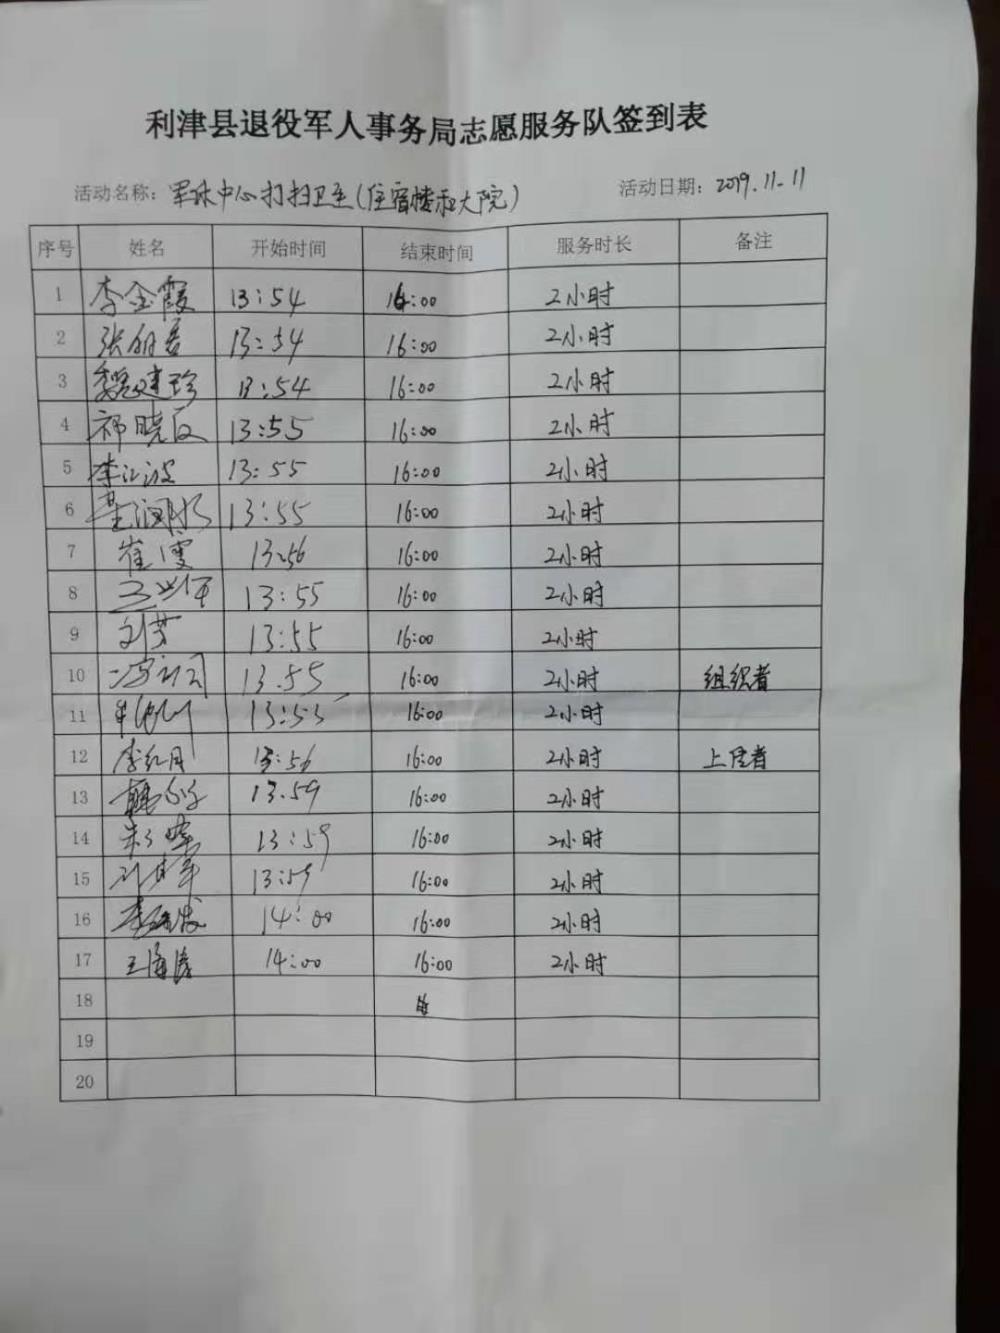 利津县退役军人事务局志愿服务队签到表
活动名称：军休中心打扫卫生(住宿楼和大院) 活动日期：2019.11.11
序号 姓名 开始时间 结束时间 服务时长 备注
1 李金霞 13:54 16:00 2小时
2 张 13:54 16:00 2小时
3 魏建珍 13:54 16:00 2小时
4 祁晓 13:55 16:00 2小时
5 李江波 13:55 16:00 2小时
6 13:55 16:00 2小时
7 崔雯 13:56 16:00 2小时
8 王 13:55 16:00 2小时
9 刘芳 13:55 16:00 2小时
10 13.55 16:00 2小时 组织者
11 13:55 16:00 2小时
12 李红月 13:56 16:00 2小时 上传者
13 13.59 16:00 2小时
14 13:59 16:00 2小时
15 13:59 16:00 2小时
16 14:00 16:00 2小时
17 王海涛 14:00 16:00 2小时
18
19
20